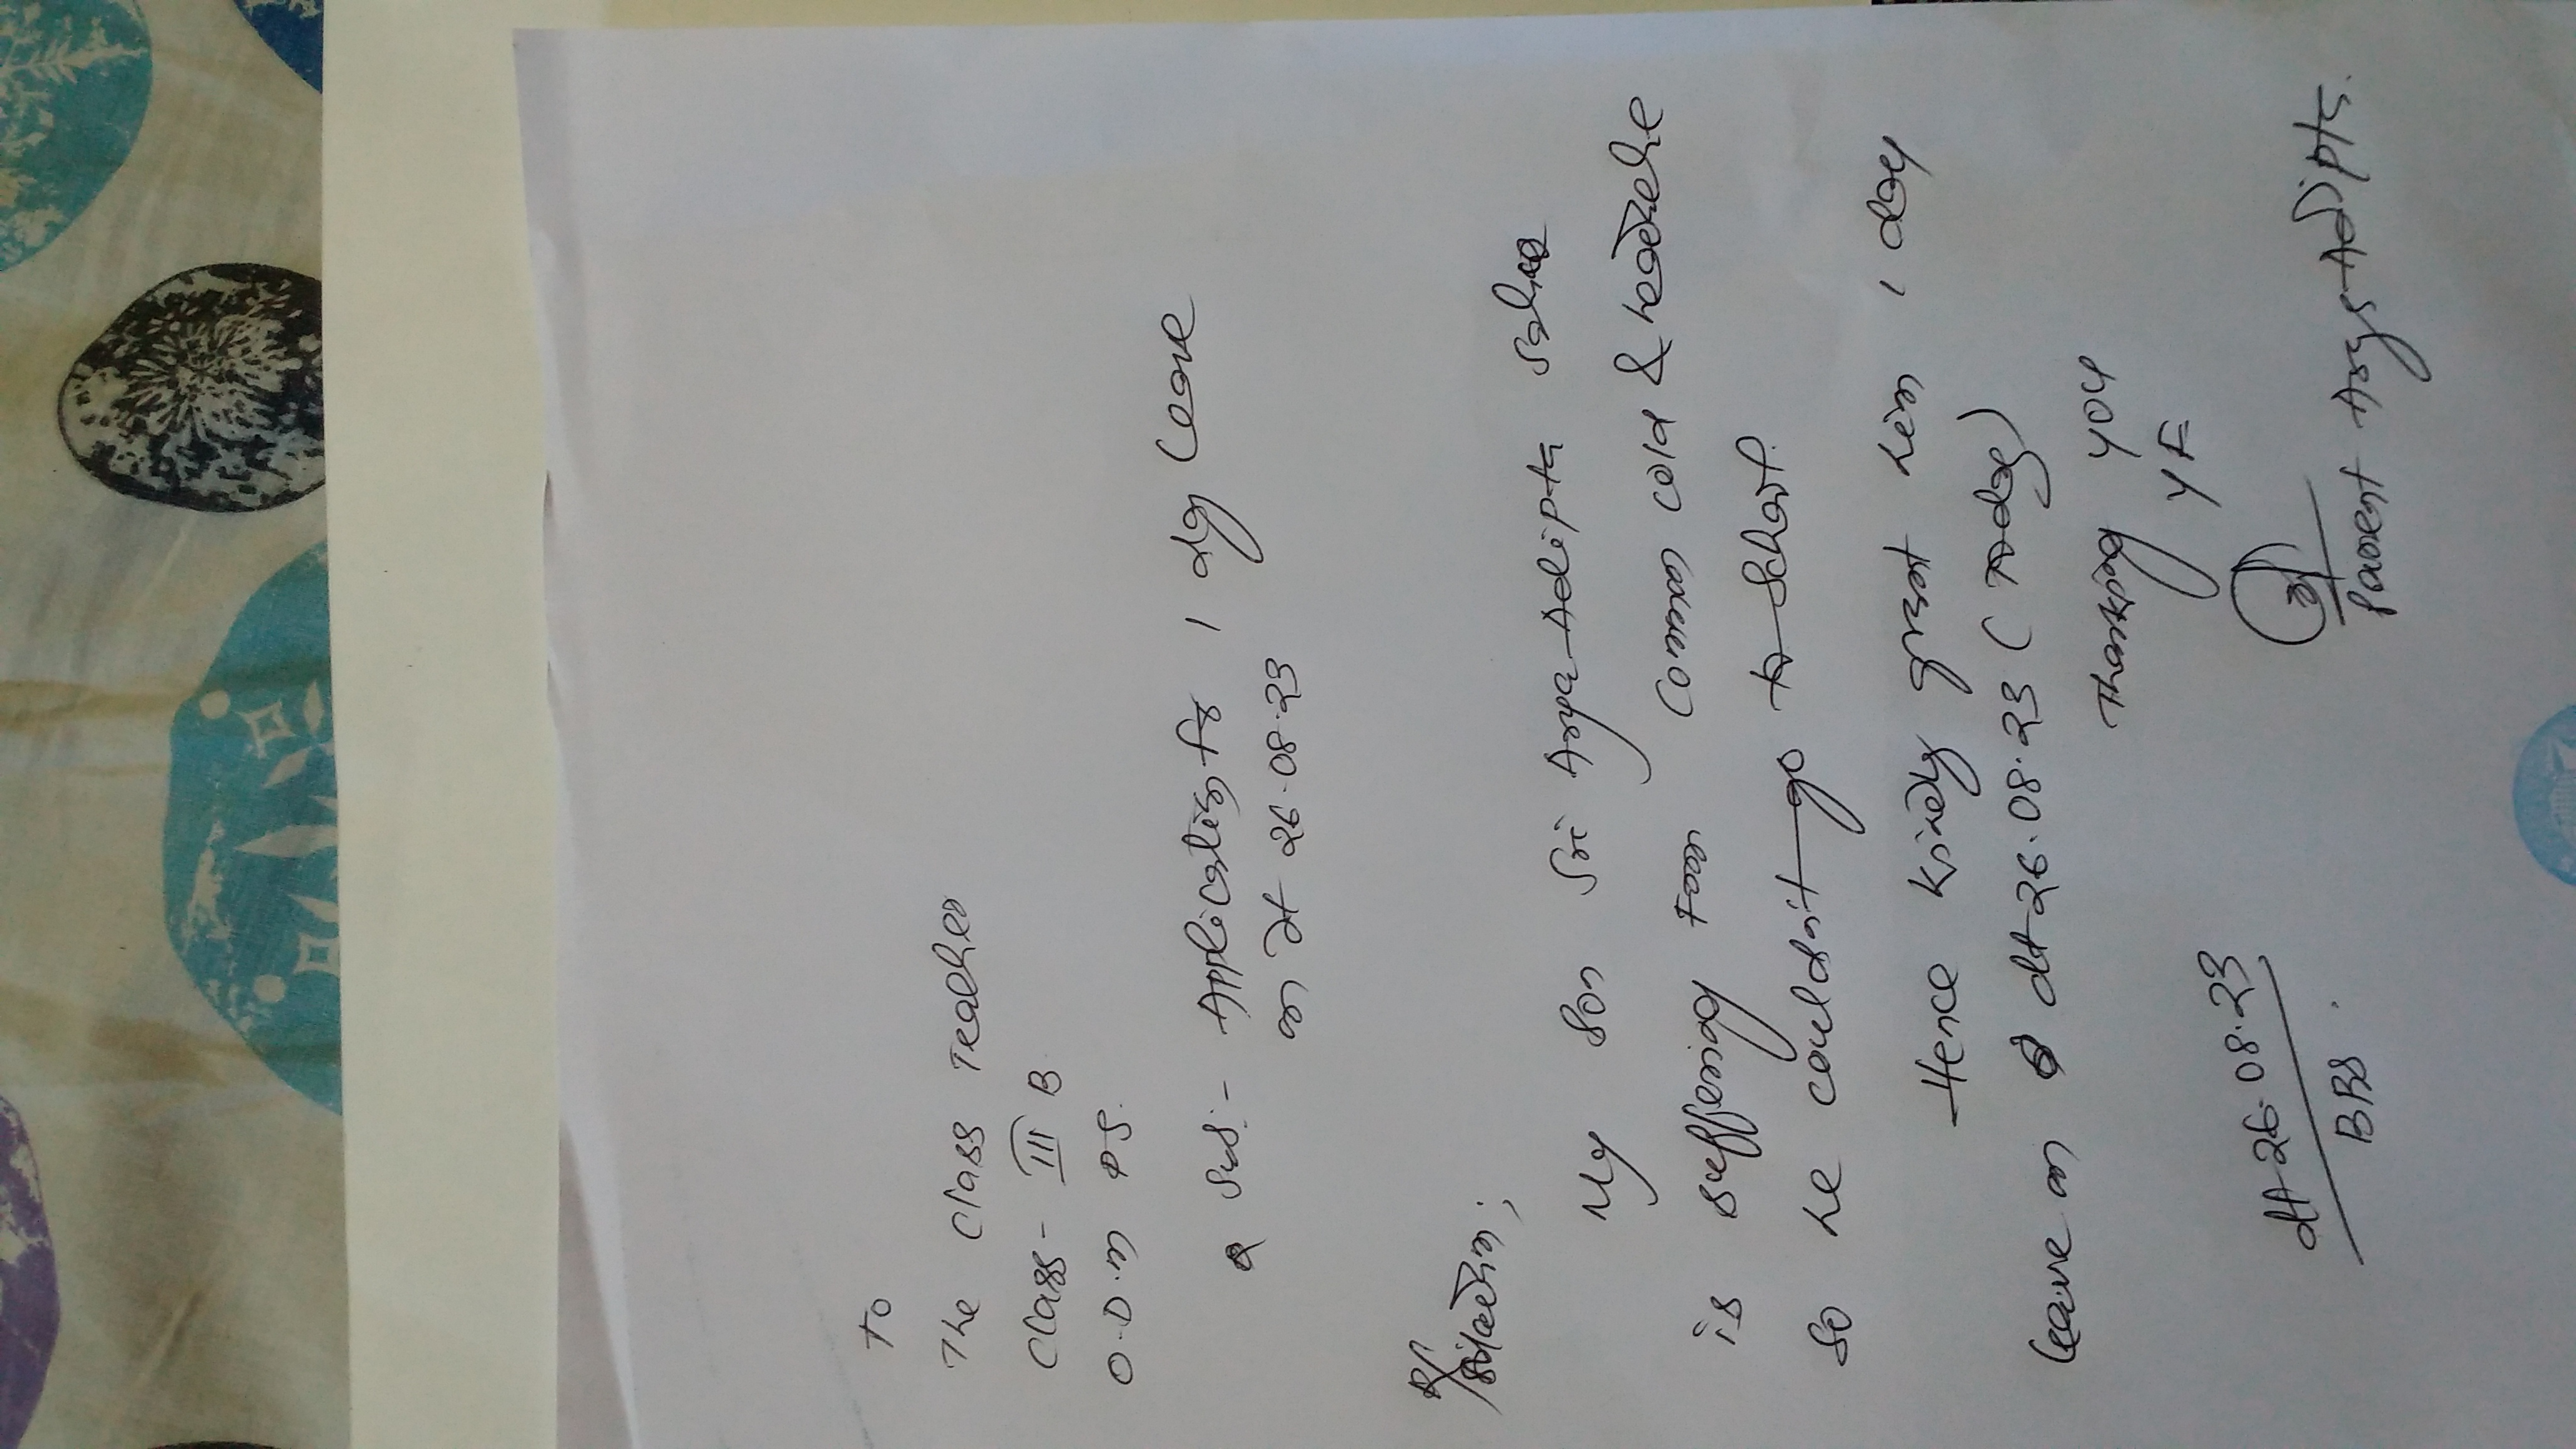 To
The Class Teacher
Class - III B
O.D.M PS.
Sub:- Application for 1 day leave
on dt 26.08.23
R/ Madam,
My Son Sri Arya Adipta Sahoo
is suffering From Common cold & headache
So he couldn't go to School.
Hence Kindly grant him 1 day
leave on dt 26.08.23 (today)
Thanking you
YF
dt 26.08.23
BBS.
Parent Arya Adipta.